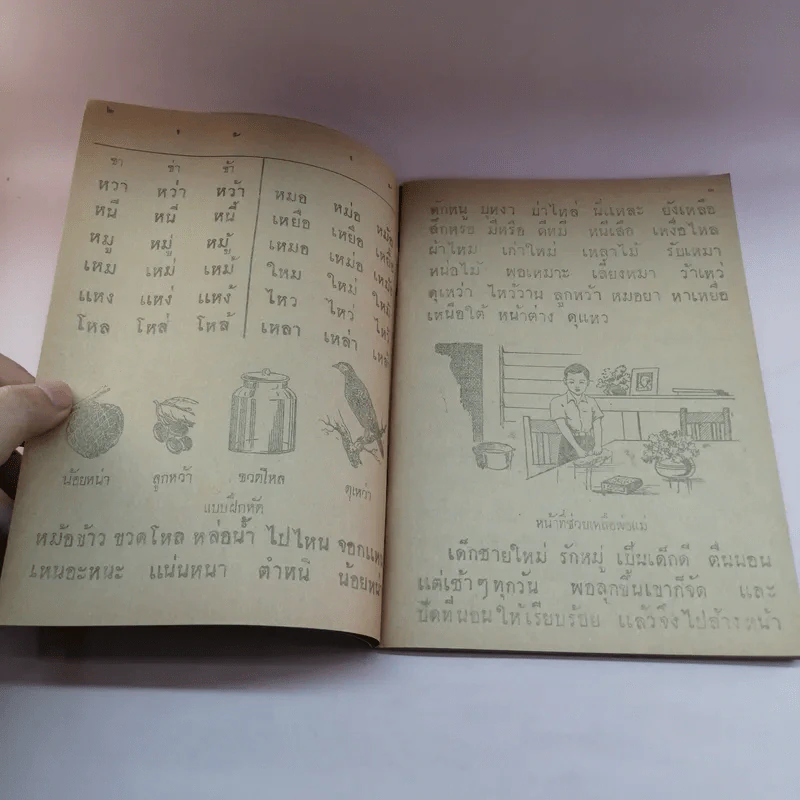 ๒
ขา ข่า ข้า
หวา หว่า หว้า หมอ หม่อ
หนี หนี่ หนี้ เหยือ เหยื่อ
หมู หมู่ หมู้ เหมอ เหม่อ
เหม เหม่ เหม้ ใหม ใหม่
แหง แหง่ แหง้ ไหว ไหว่
โหล โหล่ โหล้ เหลา เหล่า
น้อยหน่า ลูกหว้า ขวดโหล ดุเหว่า
แบบฝึกหัด
หม้อข้าว ขวดโหล หล่อน้ำ ไปไหน จอกแหน
เหนอะหนะ แน่นหนา ตำหนิ น้อยหน่า
ดักหนู บุหงา บ่าไหล่ นี่แหละ ยังเหลือ
สึกหรอ มีหรือ ดีหมี หนีเสือ เหงื่อไหล
ผ้าไหม เก่าใหม่ เหลาไม้ รับเหมา
หน่อไม้ พอเหมาะ เลี้ยงหมา ว้าเหว่
ดุเหว่า ไหว้วาน ลูกหว้า หมอยา หาเหยื่อ
เหนือใต้ หน้าต่าง ดูแหว
หน้าที่ช่วยเหลือพ่อแม่
เด็กชายใหม่ รักหมู่ เป็นเด็กดี ตื่นนอน
แต่เช้าๆ ทุกวัน พอลุกขึ้นเขาก็จัด และ
ปัดที่นอนให้เรียบร้อย แล้วจึงไปล้างหน้า